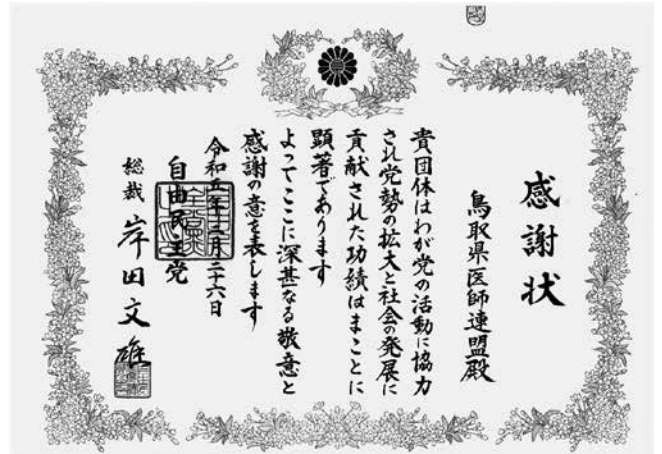 感謝状
鳥取県医師連盟殿
貴団体はわが党の活動に協力
され党勢の拡大と社会の発展に
貢献された功績はまことに
顕著であります
よってここに深甚なる敬意と
感謝の意を表します
令和五年二月二十六日
自由民主党
総裁 岸田文雄